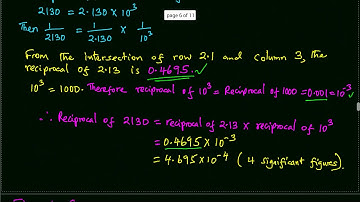 2130 = 2.130 × 10³
page 6 of 11
Then 1/2130 = 1/2.130 × 1/10³
From the intersection of row 2.1 and column 3, the
reciprocal of 2.13 is 0.4695. ✓
10³ = 1000. Therefore reciprocal of 10³ = Reciprocal of 1000 = 0.001 = 10⁻³ ✓
∴ Reciprocal of 2130 = reciprocal of 2.13 × reciprocal of 10³
= 0.4695 × 10⁻³
= 4.695 × 10⁻⁴ ( 4 significant figures).